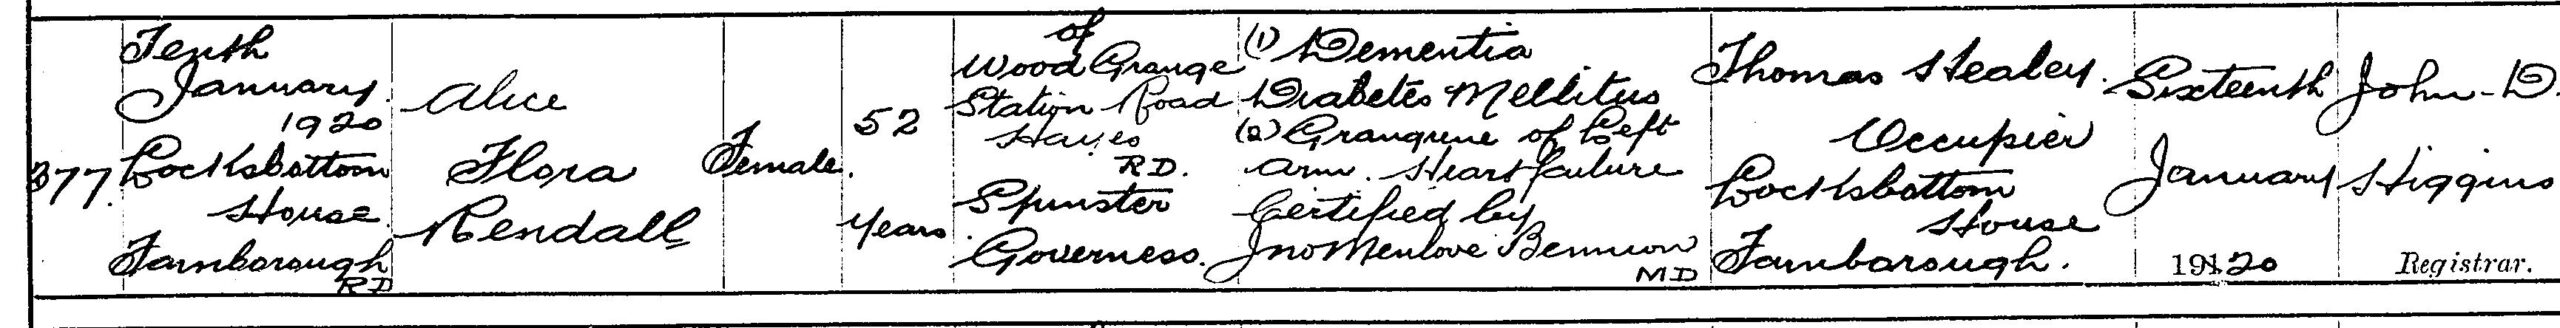 377.
Tenth
January
1920
Locksbottom
House
Farnborough
RD
Alice
Flora
Kendall
Female.
52
Years
of
Wood Grange
Station Road
Hayes
RD.
Spinster
Governess.
(1) Dementia
Diabetes Mellitus
(2) Grangrene of Left
arm. Heart failure
Certified by
Jno Menlove Bennion
MD
Thomas Healey.
Occupier
Locksbottom
House
Farnborough.
Sixteenth
January
1920
John D.
Higgins
Registrar.